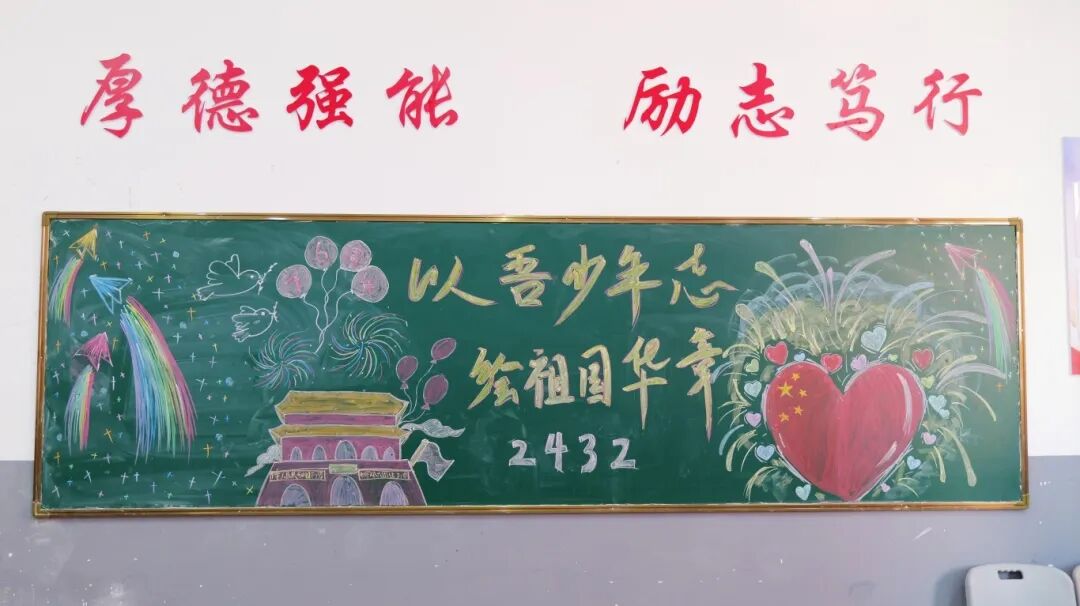 厚德强能 励志笃行
以吾少年志
绘祖国华章
2432